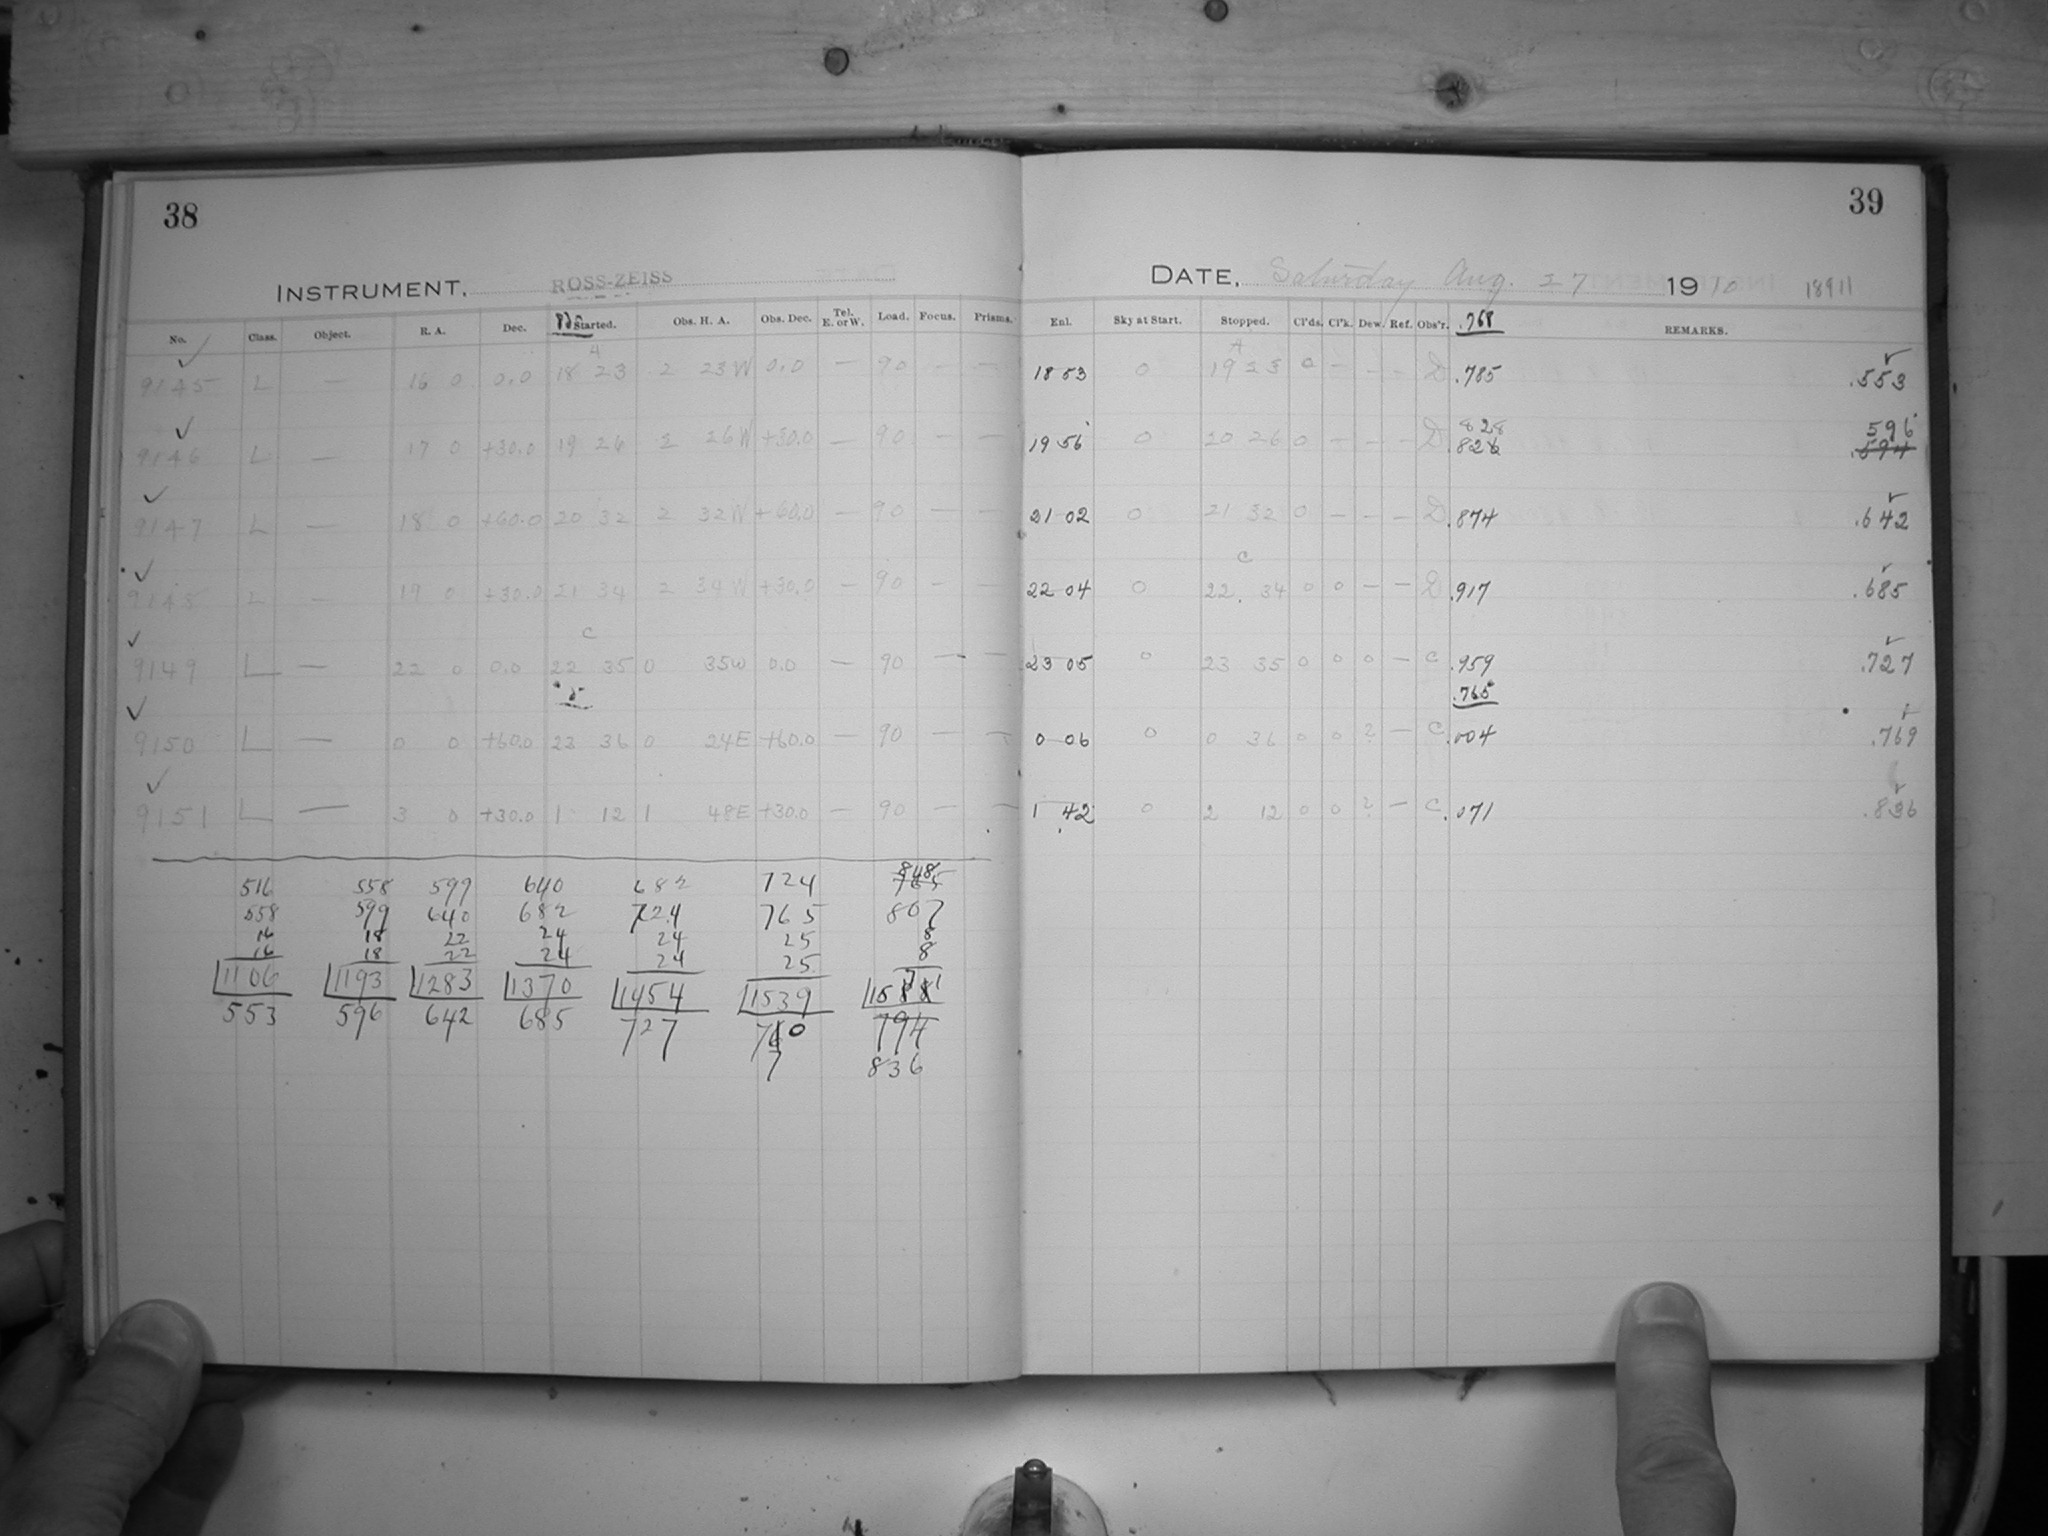 38
INSTRUMENT, ROSS-ZEISS
No. Class. Object. R. A. Dec. Started. Obs. H. A. Obs. Dec. Tel. E. or W. Load. Focus. Prisms.
9145 L — 16 0 0.0 18 23 2 23W 0.0 — 90 — —
9146 L — 17 0 +30.0 19 26 2 26W +30.0 — 90 — —
9147 L — 18 0 +60.0 20 32 2 32W +60.0 — 90 — —
9148 L — 19 0 +30.0 21 34 2 34W +30.0 — 90 — —
C
9149 L — 22 0 0.0 22 35 0 35W 0.0 — 90 — —
9150 L — 0 0 +60.0 23 36 0 24E +60.0 — 90 — —
9151 L — 3 0 +30.0 1 12 1 48E +30.0 — 90 — —
516 558 599 640 682 724 848
558 599 640 682 724 765 807
16 18 22 24 24 25 8
16 18 22 24 24 25 8
1106 1193 1283 1370 1454 1539
553 596 642 685 727 794
7 836
39
DATE, Saturday Aug. 27 1910 18911
Enl. Sky at Start. Stopped. Cl'ds. Cl'k. Dew. Ref. Obs'r. .768 REMARKS.
18 53 0 19 23 0 — — — D .785 .553
828 596
19 56 0 20 26 0 — — — D .826 .594
21 02 0 21 32 0 — — — D .874 .642
C
22 04 0 22 34 0 0 — — D .917 .685
23 05 0 23 35 0 0 0 — C .959 .727
.765
0 06 0 0 36 0 0 ? — C .004 .769
1 42 0 2 12 0 0 ? — C .071 .836